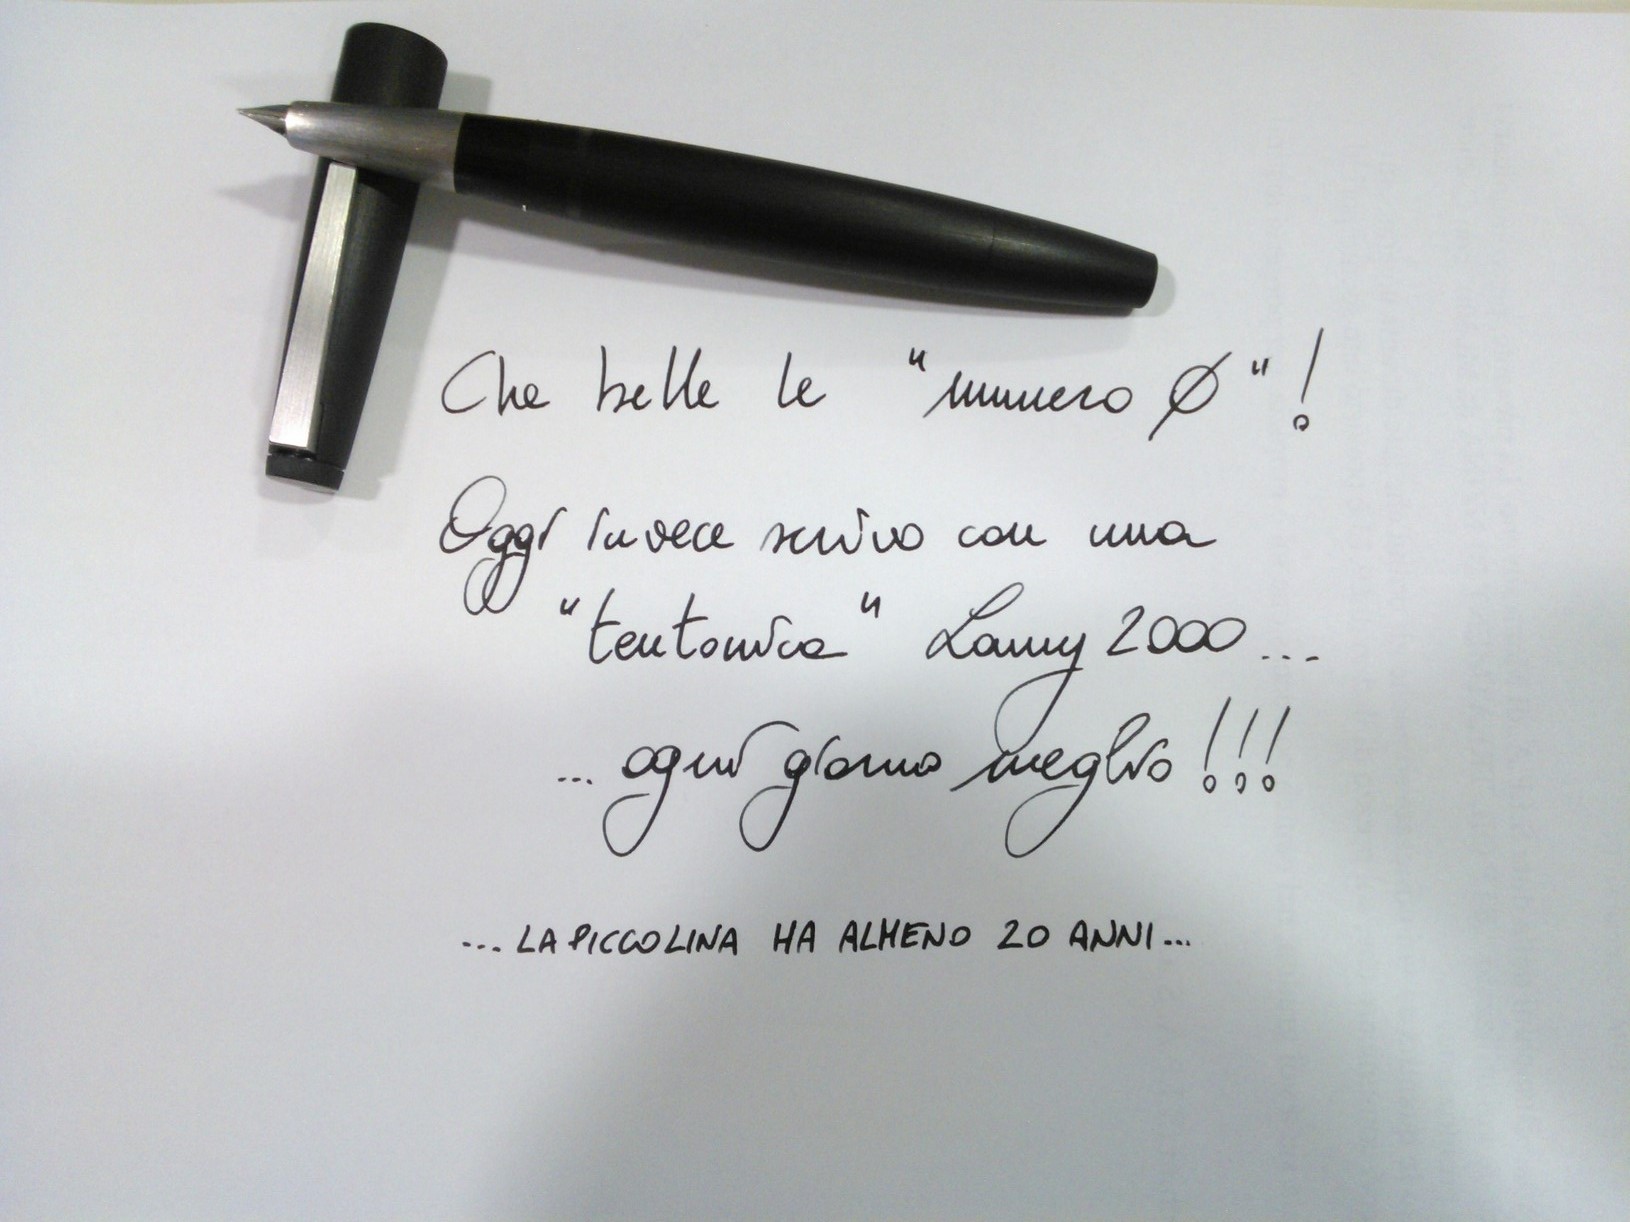 Che belle le "numero Ø"!
Oggi invece scrivo con una
"teutonica" Lamy 2000...
... ogni giorno meglio!!!
... LA PICCOLINA HA ALMENO 20 ANNI...